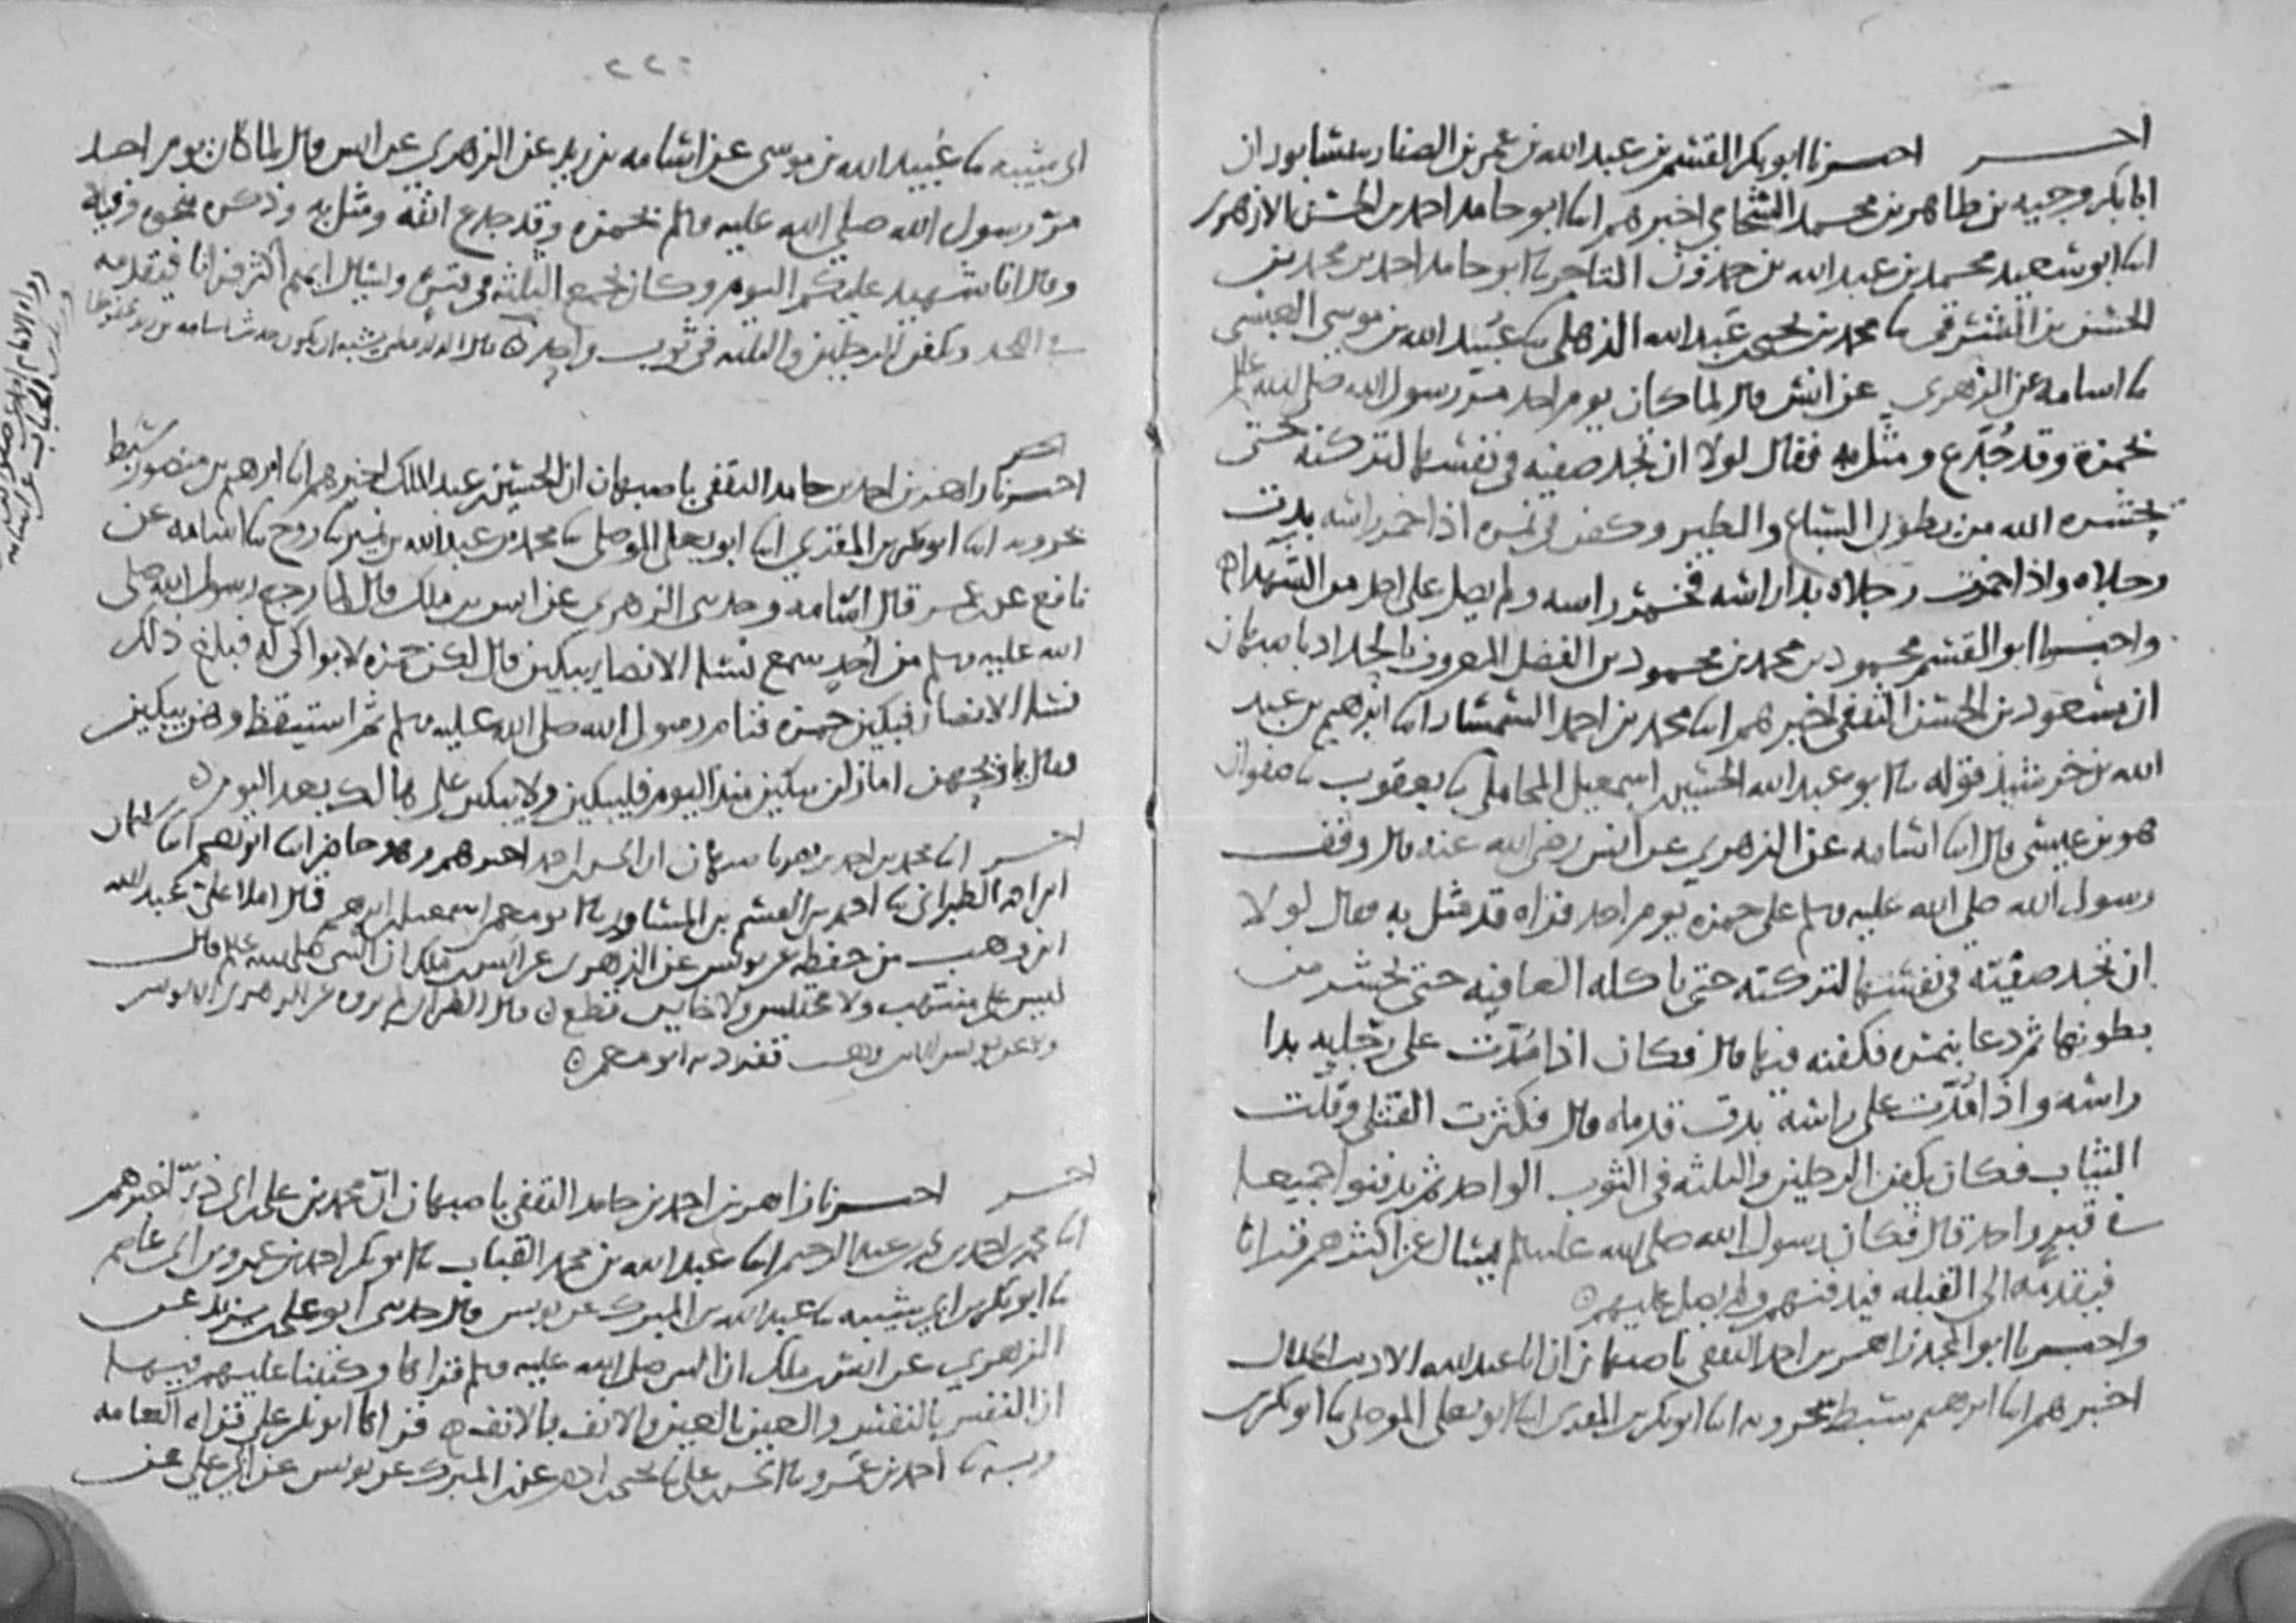 احر اخبرنا ابو بكر القسم بن عبد الله بن عمر بن الصفار بنيسابور ان
ابا بكر وجيه بن طاهر بن محمد الشحامي اخبرهم ابنا ابو حامد احمد بن الحسن الازهري
ابنا ابو سعيد محمد بن عبد الله بن حمدون التاجر نا ابو حامد احمد بن محمد بن
الحسن بن الشرقي نا محمد بن يحيى بن عبد الله الذهلي نا عبيد الله بن موسى العبسي
نا اسامه عن الزهري عن انس قال لما كان يوم احد مر رسول الله صلى الله عليه وسلم
بحمزة وقد جدع ومثل به فقال لولا ان تجد صفيه في نفسها لتركته حتى
يحشره الله من بطون السباع والطير وكفن في نمره اذا خمر راسه بدت
رجلاه واذا خمرت رجلاه بدا راسه فخمر راسه ولم يصل على احد من الشهداء ه
واخبرنا ابو القسم محمود بن محمد بن محمود بن الفضل المعروف بالحداد باصبهان
ان مسعود بن الحسن الثقفي اخبرهم ابنا محمد بن احمد السمسار ابنا ابرهيم بن عبد
الله بن خرشيذ قوله نا ابو عبد الله الحسين بن اسمعيل المحاملي نا يعقوب نا صفوان
هو بن عيسى قال ابنا اسامه عن الزهري عن انس رضي الله عنه قال وقف
رسول الله صلى الله عليه وسلم على حمزه يوم احد فراه قد مثل به فقال لولا
ان تجد صفيه في نفسها لتركته حتى تاكله العافيه حتى يحشر من
بطونها ثم دعا بنمره فكفنه فيها قال فكان اذا مدت على رجليه بدا
راسه واذا مدت على راسه بدت قدماه قال فكثرت القتلى وقلت
الثياب فكان يكفن الرجلين والثلثه في الثوب الواحد ثم يدفنوا جميعا
في قبر واحد قال فكان رسول الله صلى الله عليه وسلم يسال عن اكثرهم قرانا
فيقدمه الى القبله فيدفنهم ولم يصل عليهم ه
واخبرنا ابو المجد زاهر بن احمد الثقفي باصبهان ان ابا عبد الله الاديب الخلال
اخبرهم ابنا ابرهيم سبط بحرويه ابنا ابو بكر بن المقري ابنا ابو يعلى الموصلي نا ابو بكر بن
٢٢٠
ابي شيبه نا عبيد الله بن موسى عن اسامه بن زيد عن الزهري عن انس قال لما كان يوم احد
مر رسول الله صلى الله عليه وسلم بحمزه وقد جدع انفه ومثل به وذكر نحوه وفيه
وقال انا شهيد عليكم اليوم وكان يجمع الثلثه في قبر وليسال ايهم اكثر قرانا فيقدمه
في اللحد وكفن الرجلين والثلثه في ثوب واحد ه قال الدارقطني يشبه ان يكون حديث اسامه بن زيد محفوظا
احر
اخبرنا زاهر بن احمد بن حامد الثقفي باصبهان ان الحسين بن عبد الملك اخبرهم ابنا ابرهيم بن منصور سبط
بحرويه ابنا ابو بكر بن المقري ابنا ابو يعلى الموصلي نا محمد بن عبد الله بن نمير نا روح نا اسامه عن
نافع عن بن عمر قال اسامه وحدثني الزهري عن انس بن ملك قال لما رجع رسول الله صلى
الله عليه وسلم من احد سمع نساء الانصار يبكين قال لكن حمزه لا بواكي له فبلغ ذلك
نساء الانصار فبكين حمزه فنام رسول الله صلى الله عليه وسلم ثم استيقظ وهن يبكين
فقال يا ويحهن اما زلن يبكين منذ اليوم فليبكين ولا يبكين على هالك بعد اليوم ه
احر ابنا محمد بن احمد بن نصر باصبهان ان الحسن بن احمد اخبرهم وهو حاضر ابنا ابو نعيم ابنا سليمان
بن احمد الطبراني نا احمد بن القسم بن المساور نا ابو معمر اسمعيل بن ابرهيم قال املا علي عبد الله
ابن وهب من حفظه عن يونس عن الزهري عن انس بن ملك ان النبي صلى الله عليه وسلم قال
ليس على منتهب ولا مختلس ولا خاين قطع ه قال الطبراني لم يروه عن الزهري الا يونس
ولا عن يونس الا ابن وهب تفرد به ابو معمر ه
احر اخبرنا زاهر بن احمد بن حامد الثقفي باصبهان ان محمد بن علي بن ابي ذر اخبرهم
ابنا محمد بن احمد بن عبد الرحيم ابنا عبد الله بن محمد القباب نا ابو بكر احمد بن عمرو بن ابي عاصم
نا ابو بكر بن ابي شيبه نا عبد الله بن المبرك عن يونس قال حدثني ابو علي بن يزيد عن
الزهري عن انس بن ملك ان النبي صلى الله عليه وسلم قراها وكتبنا عليهم فيها
ان النفس بالنفس والعين بالعين والانف بالانف ه قراها ابو بكر على قراه العامه
وبه نا احمد بن عمرو نا الحسن بن علي نا يحيى بن ادم عن بن المبرك عن يونس عن ابي علي عن